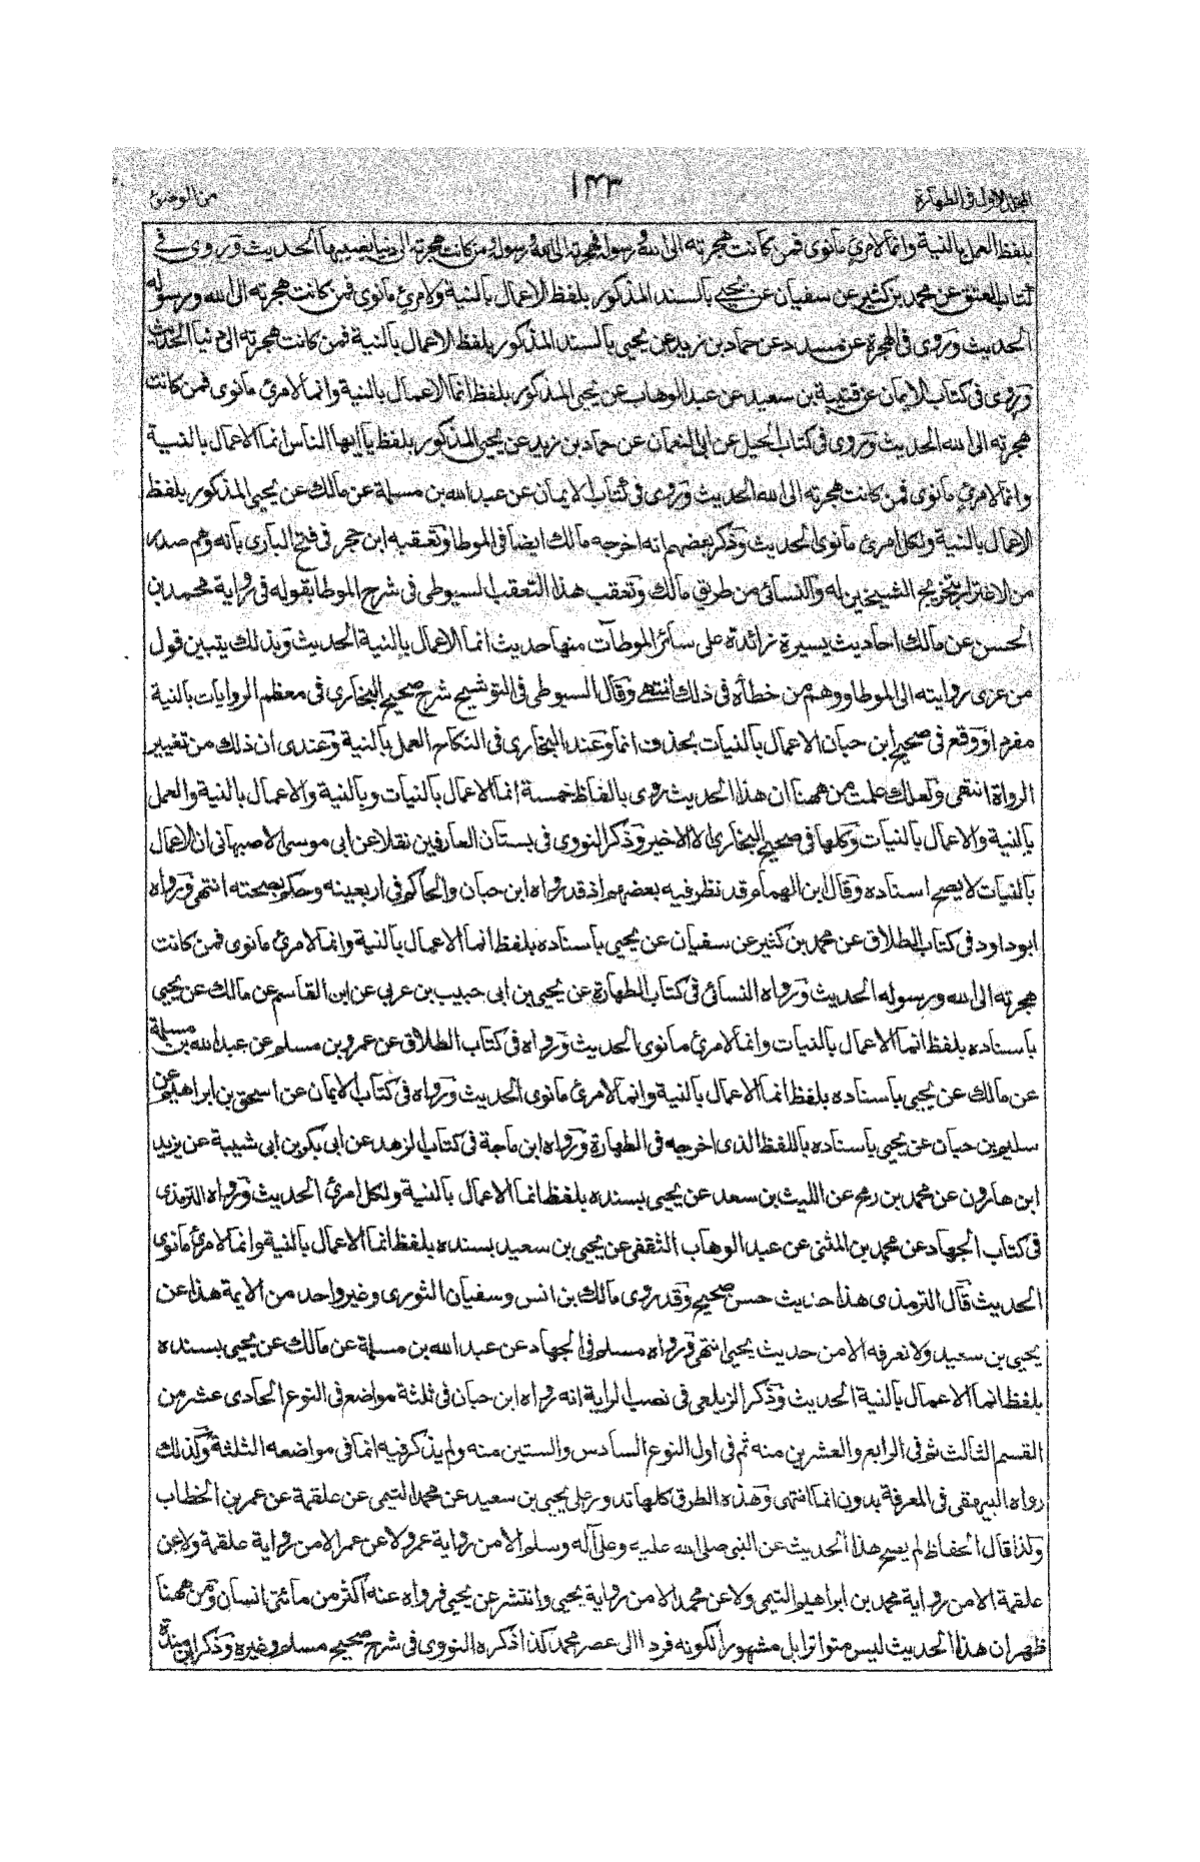 المجلد الاول فى الطهارة
١٤٣
من الوضوء
بلفظ العمل بالنية وانما لامرئ مانوى فمن كانت هجرته الى الله ورسوله فهجرته الى الله ورسوله ومن كانت هجرته الى دنيا يصيبها الحديث وروى فى
كتاب العتق عن محمد بن كثير عن سفيان عن يحيى بالسند المذكور بلفظ الاعمال بالنية ولامرئ مانوى فمن كانت هجرته الى الله ورسوله
الحديث وروى فى الهجرة عن مسدد عن حماد بن زيد عن يحيى بالسند المذكور بلفظ الاعمال بالنية فمن كانت هجرته الى دنيا الحديث
وروى فى كتاب الايمان عن قتيبة بن سعيد عن عبد الوهاب عن يحيى المذكور بلفظ انما الاعمال بالنية وانما لامرئ مانوى فمن كانت
هجرته الى الله الحديث وروى فى كتاب الحيل عن ابى النعمان عن حماد بن زيد عن يحيى المذكور بلفظ يا ايها الناس انما الاعمال بالنية
وانما لامرئ مانوى فمن كانت هجرته الى الله الحديث وروى فى كتاب الايمان عن عبد الله بن مسلمة عن مالك عن يحيى المذكور بلفظ
الاعمال بالنية ولكل امرئ مانوى الحديث وذكر بعضهم انه اخرجه مالك ايضا فى الموطا وتعقبه ابن حجر فى فتح البارى بانه وهم صدر
من الاغترار بتخريج الشيخين له والنسائى من طريق مالك وتعقب هذا التعقب السيوطى فى شرح الموطا بقوله فى رواية محمد بن
الحسن عن مالك احاديث يسيرة زائدة على سائر الموطآت منها حديث انما الاعمال بالنية الحديث وبذلك يتبين قول
من عزى روايته الى الموطا ووهم من خطأه فى ذلك انتهى وقال السيوطى فى التوشيح شرح صحيح البخارى فى معظم الروايات بالنية
مفردا ووقع فى صحيح ابن حبان الاعمال بالنيات بحذف انما وعند البخارى فى النكاح العمل بالنية وعندى ان ذلك من تغيير
الرواة انتهى ولعلك علمت من ههنا ان هذا الحديث روى بالفاظ خمسة انما الاعمال بالنيات وبالنية والاعمال بالنية والعمل
بالنية والاعمال بالنيات وكلها فى صحيح البخارى الا الاخير وذكر النووى فى بستان العارفين نقلا عن ابى موسى الاصبهانى ان الاعمال
بالنيات لا يصح اسناده وقال ابن الهمام قد نظر فيه بعضهم اذ قد رواه ابن حبان والحاكم فى اربعينه وحكم بصحته انتهى ورواه
ابوداود فى كتاب الطلاق عن محمد بن كثير عن سفيان عن يحيى باسناده بلفظ انما الاعمال بالنية وانما لامرئ مانوى فمن كانت
هجرته الى الله ورسوله الحديث ورواه النسائى فى كتاب الطهارة عن يحيى بن ابى حبيب بن عربى عن ابن القاسم عن مالك عن يحيى
باسناده بلفظ انما الاعمال بالنيات وانما لامرئ مانوى الحديث ورواه فى كتاب الطلاق عن عمرو بن مسلم عن عبد الله بن مسلمة
عن مالك عن يحيى باسناده بلفظ انما الاعمال بالنية وانما لامرئ مانوى الحديث ورواه فى كتاب الايمان عن اسحق بن ابراهيم عن
سليم بن حبان عن يحيى باسناده باللفظ الذى اخرجه فى الطهارة ورواه ابن ماجة فى كتاب الزهد عن ابى بكر بن ابى شيبة عن يزيد
ابن هارون عن محمد بن رمح عن الليث بن سعد عن يحيى بسنده بلفظ انما الاعمال بالنية ولكل امرئ الحديث ورواه الترمذى
فى كتاب الجهاد عن محمد بن المثنى عن عبد الوهاب الثقفى عن يحيى بن سعيد بسنده بلفظ انما الاعمال بالنية وانما لامرئ مانوى
الحديث قال الترمذى هذا حديث حسن صحيح وقد روى مالك بن انس وسفيان الثورى وغير واحد من الايمة هذا عن
يحيى بن سعيد ولا نعرفه الا من حديث يحيى انتهى ورواه مسلم فى الجهاد عن عبد الله بن مسلمة عن مالك عن يحيى بسنده
بلفظ انما الاعمال بالنية الحديث وذكر الزيلعى فى نصب الراية انه رواه ابن حبان فى ثلثة مواضع فى النوع الحادى عشر من
القسم الثالث ثم فى الرابع والعشرين منه ثم فى اول النوع السادس والستين منه ولم يذكر فيه انما فى مواضعه الثلثة وكذلك
رواه البيهقى فى المعرفة بدون انما انتهى وهذه الطرق كلها تدور على يحيى بن سعيد عن محمد التيمى عن علقمة عن عمر بن الخطاب
ولذا قال الحفاظ لم يصح هذا الحديث عن النبى صلى الله عليه وعلى آله وسلم الا من رواية عمر ولا عن عمر الا من رواية علقمة ولا عن
علقمة الا من رواية محمد بن ابراهيم التيمى ولا عن محمد الا من رواية يحيى وانتشر عن يحيى فرواه عنه اكثر من مائتى انسان ومن ههنا
ظهر ان هذا الحديث ليس متواترا بل مشهورا لكونه فردا الى عصر محمد كذا ذكره النووى فى شرح صحيح مسلم وغيره وذكر ابن مندة